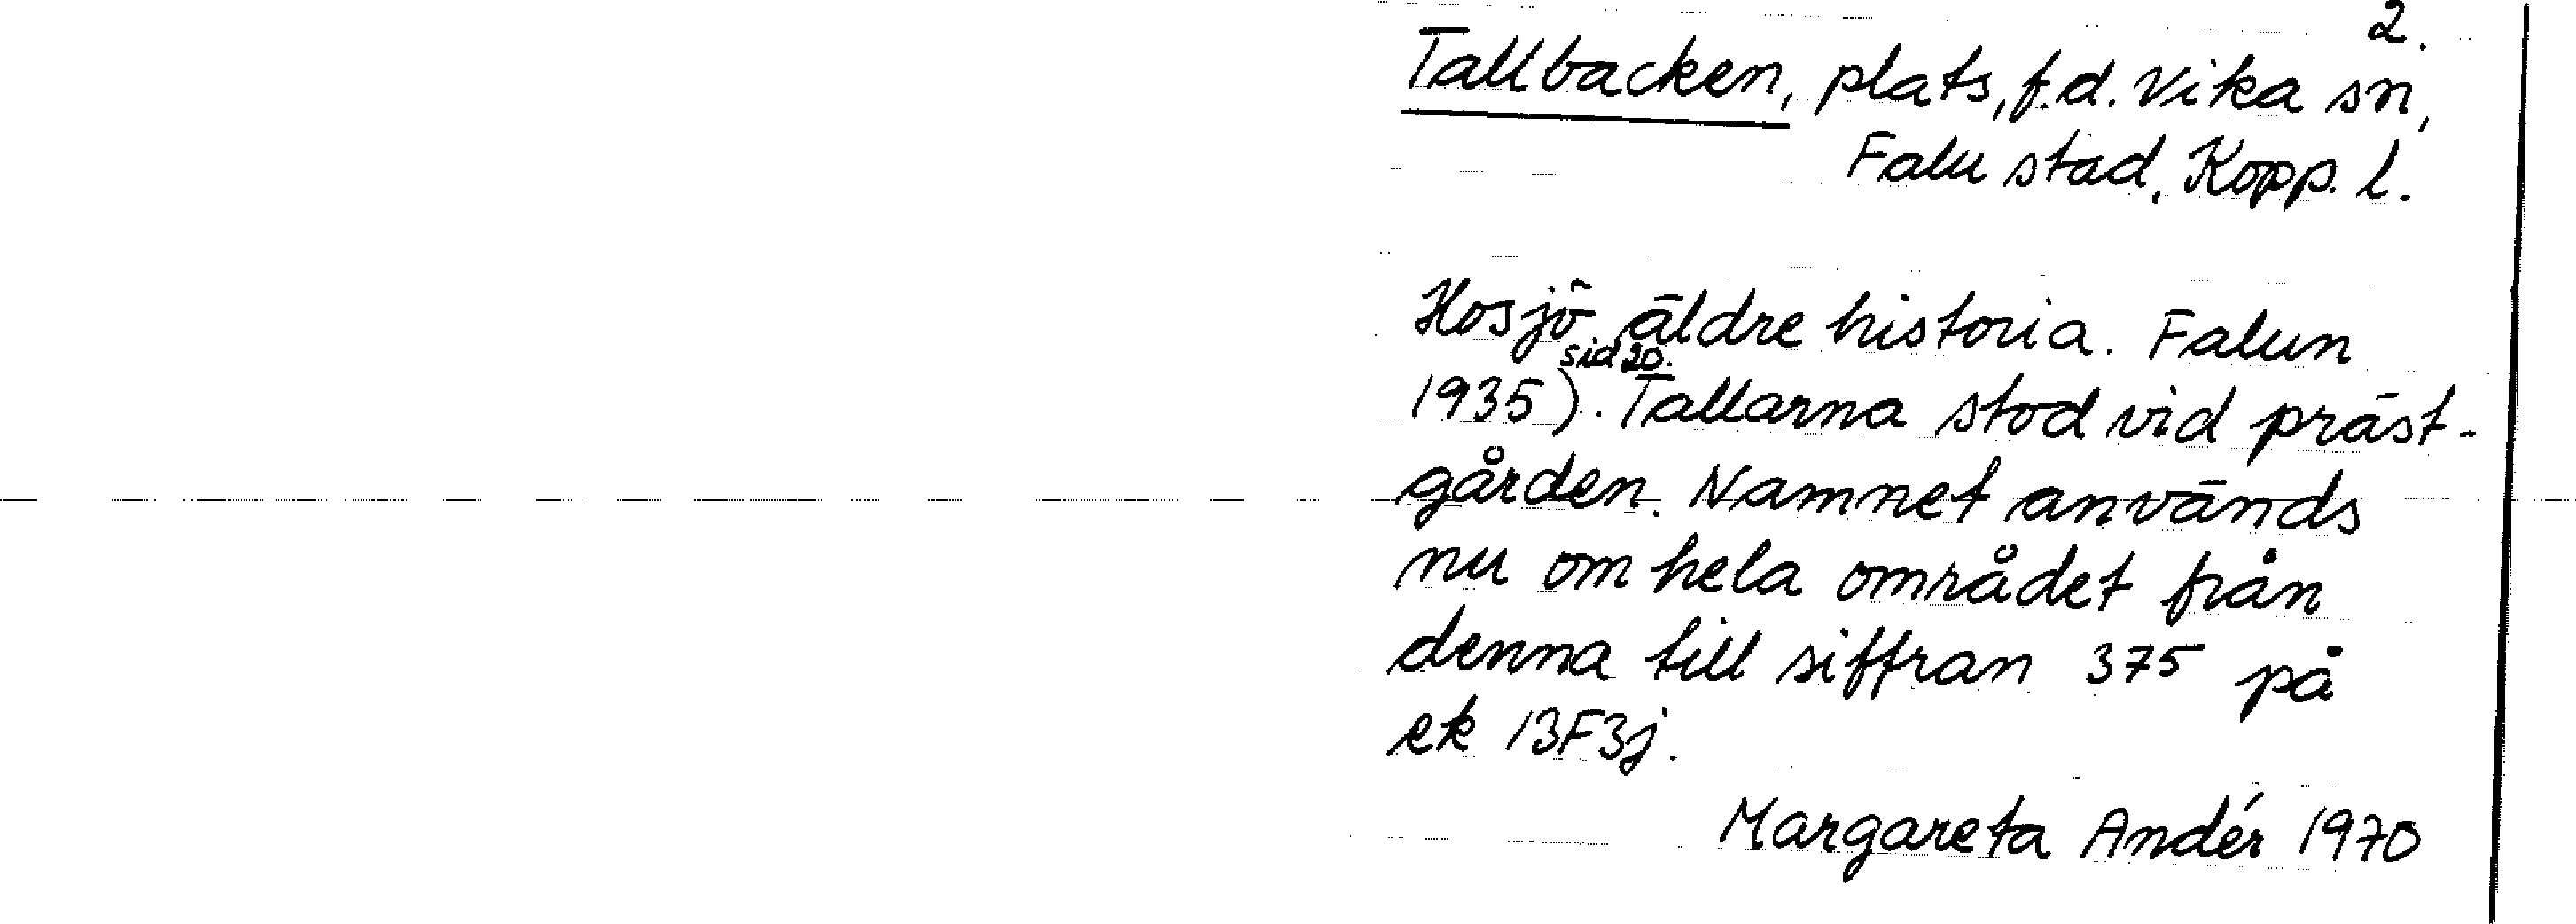 2.
Tallbacken, plats, f.d. Vika sn,
Falu stad, Kopp. l.
Hosjö äldre historia. Falun
sid 20.
1935). Tallarna stod vid präst-
gården. Namnet används
nu om hela området från
denna till siffran 375 på
ek 13F3j.
Margareta Andér 1970